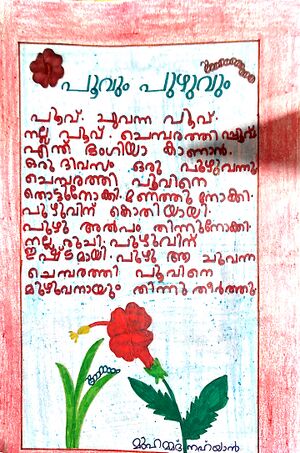 പൂവും പുഴുവും
പൂവ്. ചുവന്ന പൂവ്.
നല്ല പൂവ്. ചെമ്പരത്തി പൂവ്
എന്ത് ഭംഗിയാ കാണാൻ.
ഒരു ദിവസം ഒരു പുഴുവന്നു
ചെമ്പരത്തി പൂവിനെ
തൊട്ടുനോക്കി. മണത്തു നോക്കി.
പുഴുവിന് കൊതിയായി.
പുഴു അൽപം തിന്നുനോക്കി.
നല്ല രുചി. പുഴുവിന്
ഇഷ്ടമായി. പുഴു ആ ചുവന്ന
ചെമ്പരത്തി പൂവിനെ
മുഴുവനായും തിന്നു തീർത്തു.
മുഹമ്മദ് നഹ്‌യാൻ